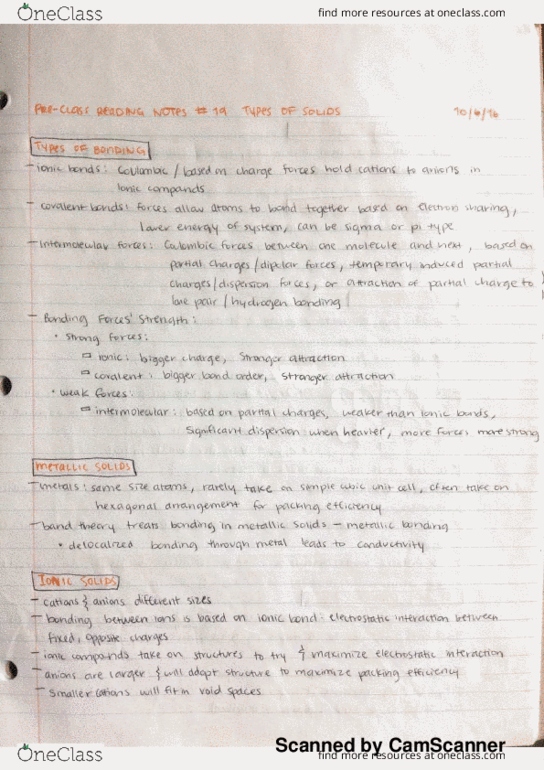 OneClass
find more resources at oneclass.com
PRE-CLASS READING NOTES # 19 TYPES OF SOLIDS
10/6/16
TYPES OF BONDING
- ionic bonds: Coulombic / based on charge forces hold cations to anions in
ionic compounds
- covalent bonds: forces allow atoms to bond together based on electron sharing,
lower energy of system, can be sigma or pi type
- Intermolecular forces: Colombic forces between one molecule and next, based on
partial charges/dipolar forces, temporary induced partial
charges/dispersion forces, or attraction of partial charge to
lone pair / hydrogen bonding
- Bonding Forces' Strength:
• Strong forces:
ionic: bigger charge, stronger attraction
covalent: bigger bond order, stronger attraction
• weak forces:
intermolecular: based on partial charges, weaker than ionic bonds,
Significant dispersion when heavier, more forces more strong
METALLIC SOLIDS
- metals: same size atoms, rarely take on simple cubic unit cell, often take on
hexagonal arrangement for packing efficiency
- band theory treats bonding in metallic solids - metallic bonding
• delocalized bonding through metal leads to conductivity
IONIC SOLIDS
- cations & anions different sizes
- bonding between ions is based on ionic bond: electrostatic interaction between
fixed, opposite charges
- ionic compounds take on structures to try & maximize electrostatic interaction
- anions are larger & will adopt structure to maximize packing efficiency
- Smaller cations will fit in void spaces
Scanned by CamScanner
OneClass
find more resources at oneclass.com